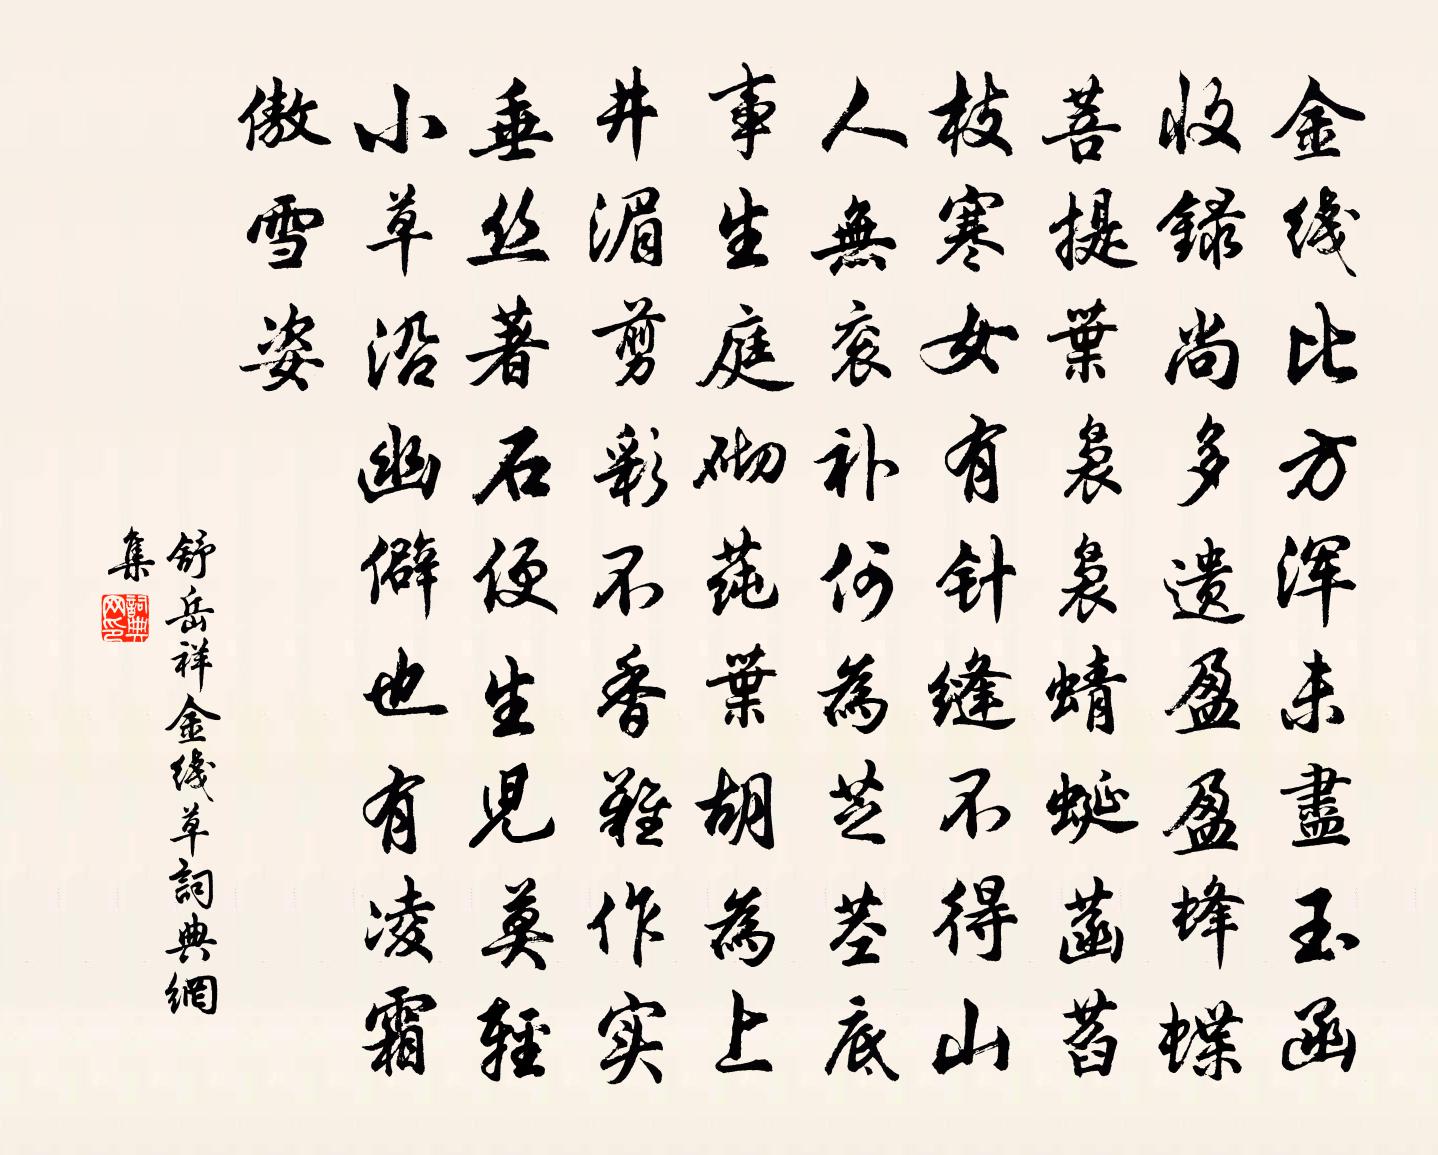 金线比方浑未盡玉函
收録尚多遗盈盈蜂蝶
菩提葉袅袅蜻蜓菡萏
枝寒女有针缝不得山
人無衮补何為芝茎底
事生庭砌莼葉胡為上
井湄剪彩不香難作实
垂丝著石便生児莫輕
小草沿幽僻也有凌霜
傲雪姿
舒岳祥金线草詞典網
集
詞典网印